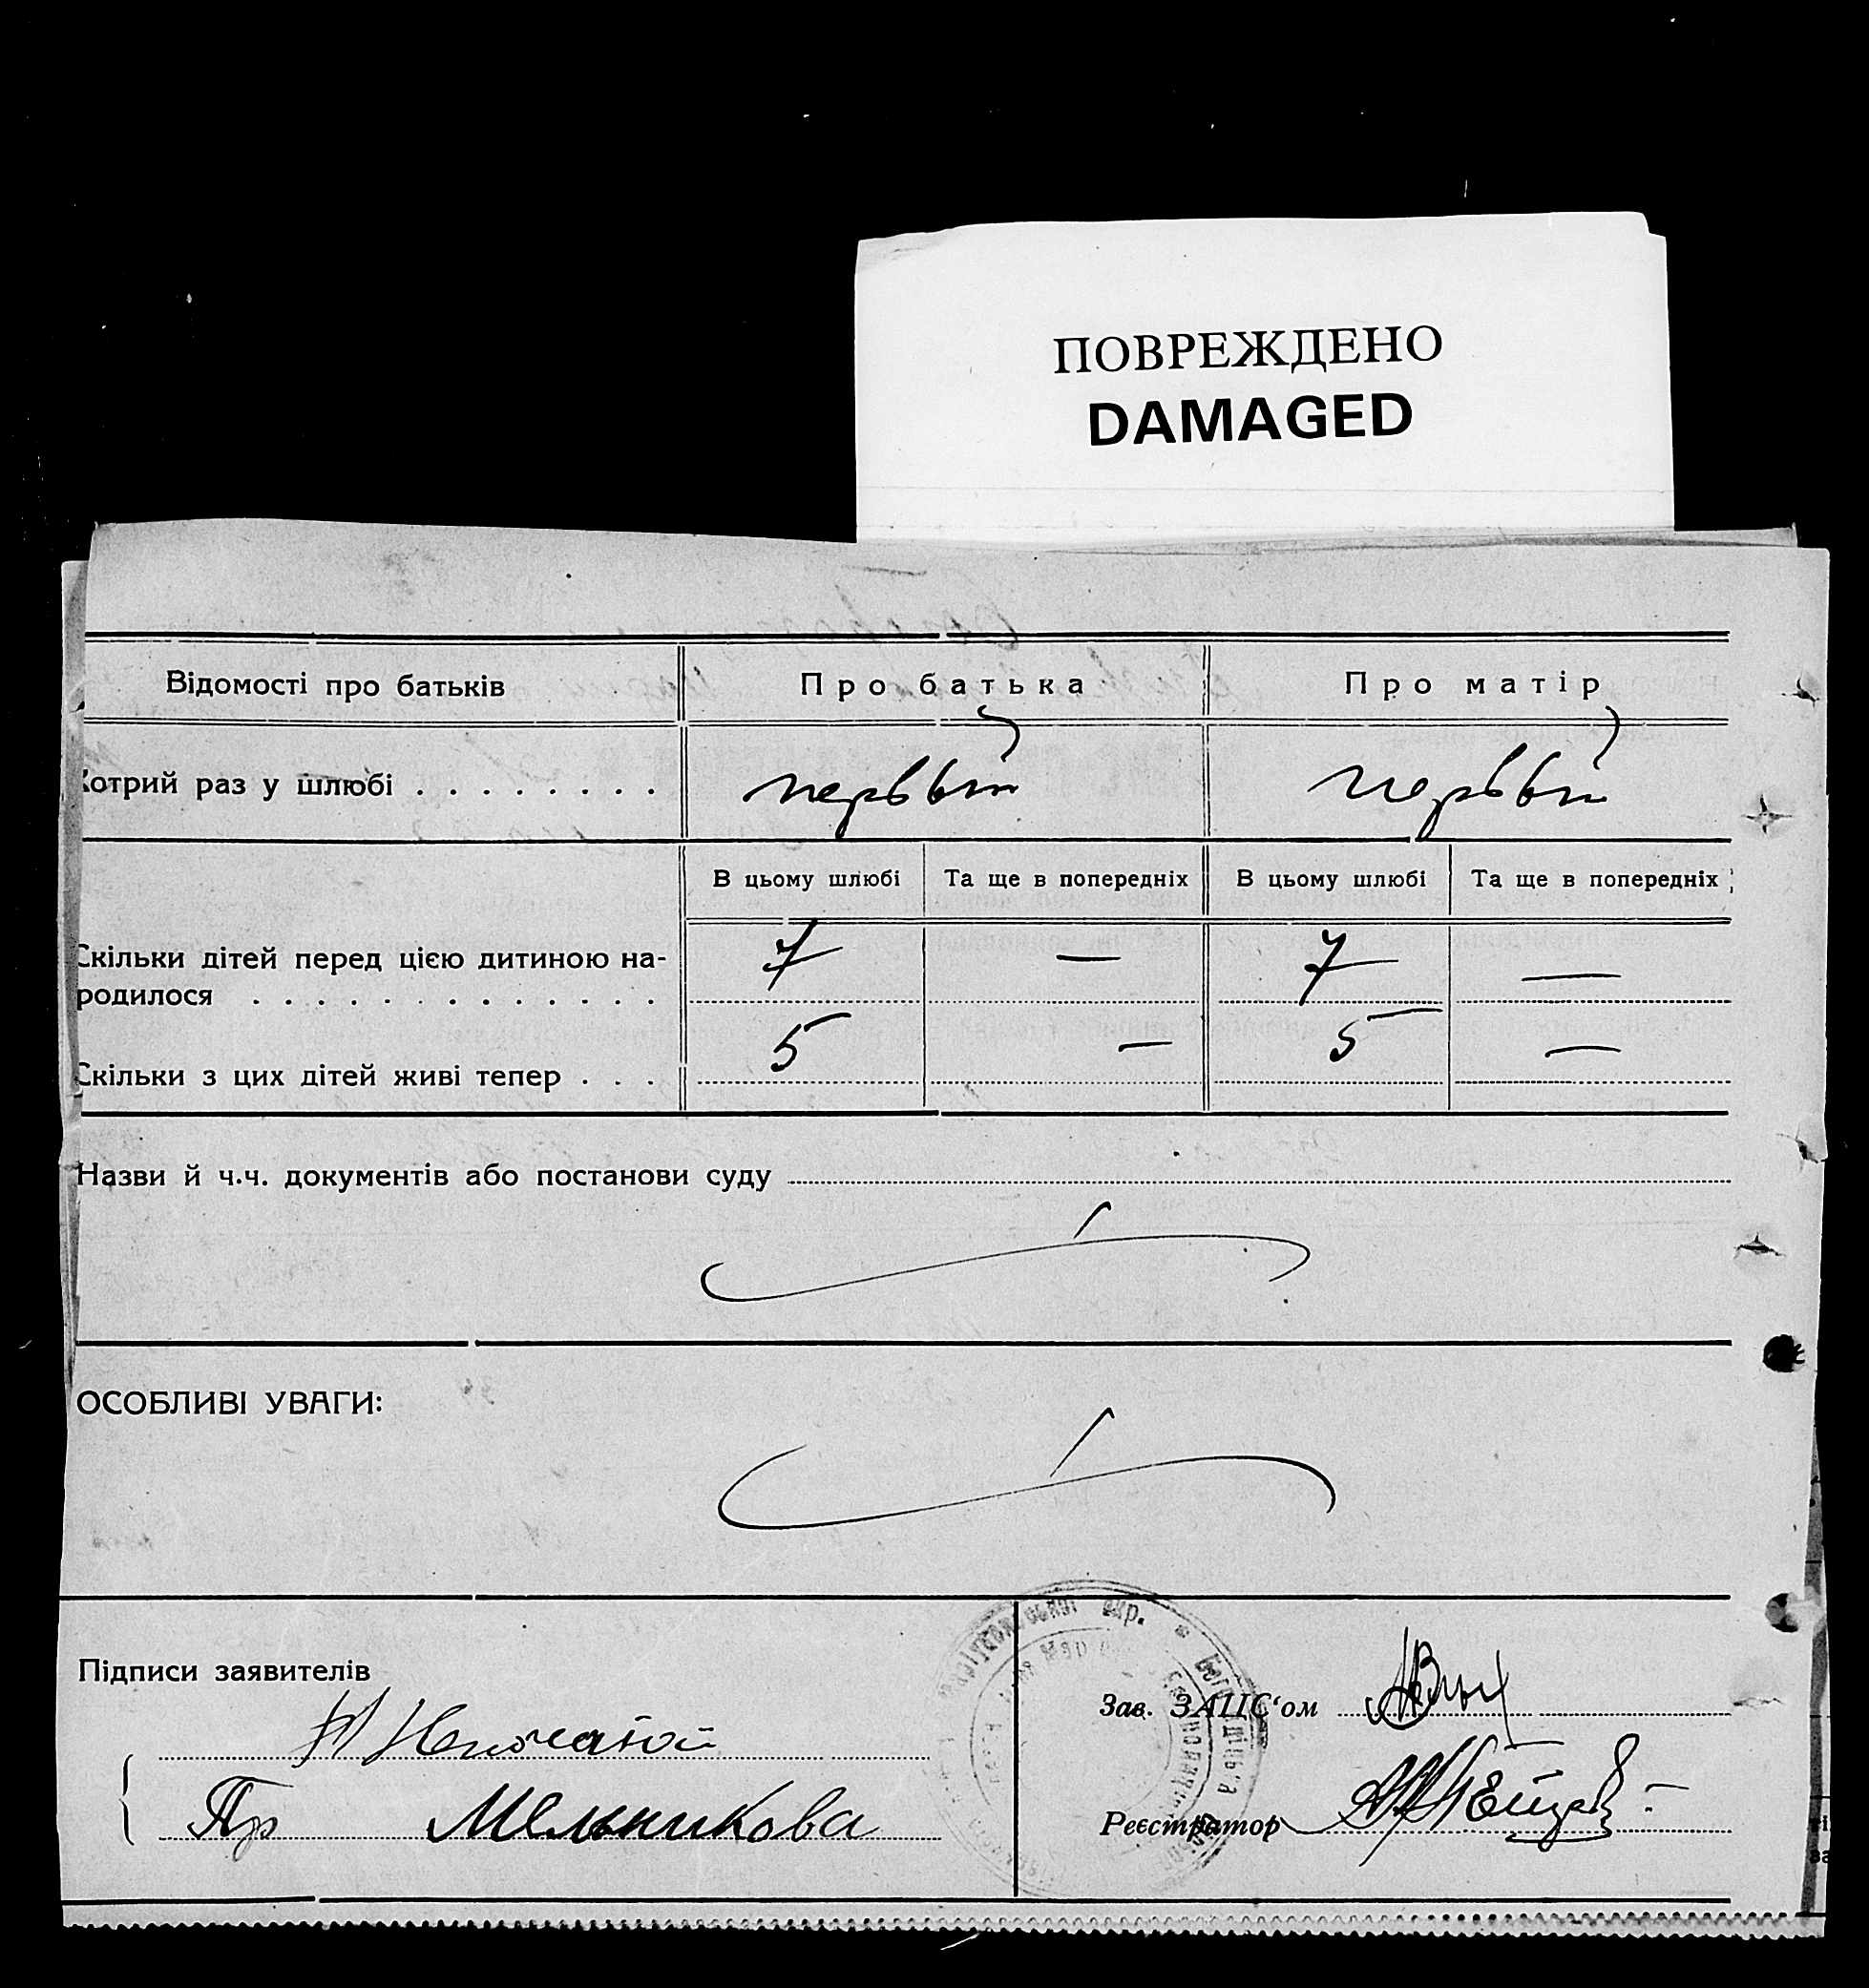 ПОВРЕЖДЕНО
DAMAGED
Відомості про батьків
Про батька
Про матір
Котрий раз у шлюбі . . . . . . . .
первый
первый
В цьому шлюбі
Та ще в попередніх
В цьому шлюбі
Та ще в попередніх
Скільки дітей перед цією дитиною на-
родилося . . . . . . . . . . . . .
7
—
7
—
Скільки з цих дітей живі тепер . . .
5
—
5
—
Назви й ч.ч. документів або постанови суду
ОСОБЛИВІ УВАГИ:
Підписи заявителів
Пр Мельникова
Зав. ЗАЦС‘ом
Реєстратор